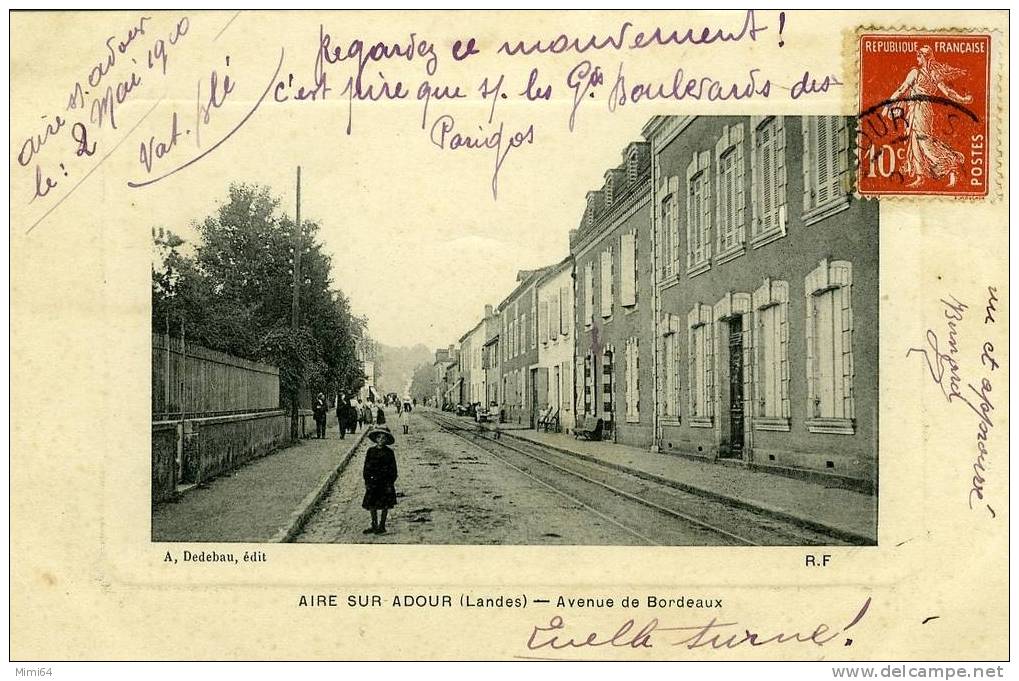 aire s/. adour
le: 2 Mai 1910
Vat. plé
Regardez ce mouvement !
c'est pire que s/. les Gds Boulevards des
Parigos
REPUBLIQUE FRANÇAISE
10c
POSTES
OUR
vu et approuvé
A, Dedebau, édit
R.F
AIRE SUR ADOUR (Landes) — Avenue de Bordeaux
Quelle turne !
Mimi64
www.delcampe.net